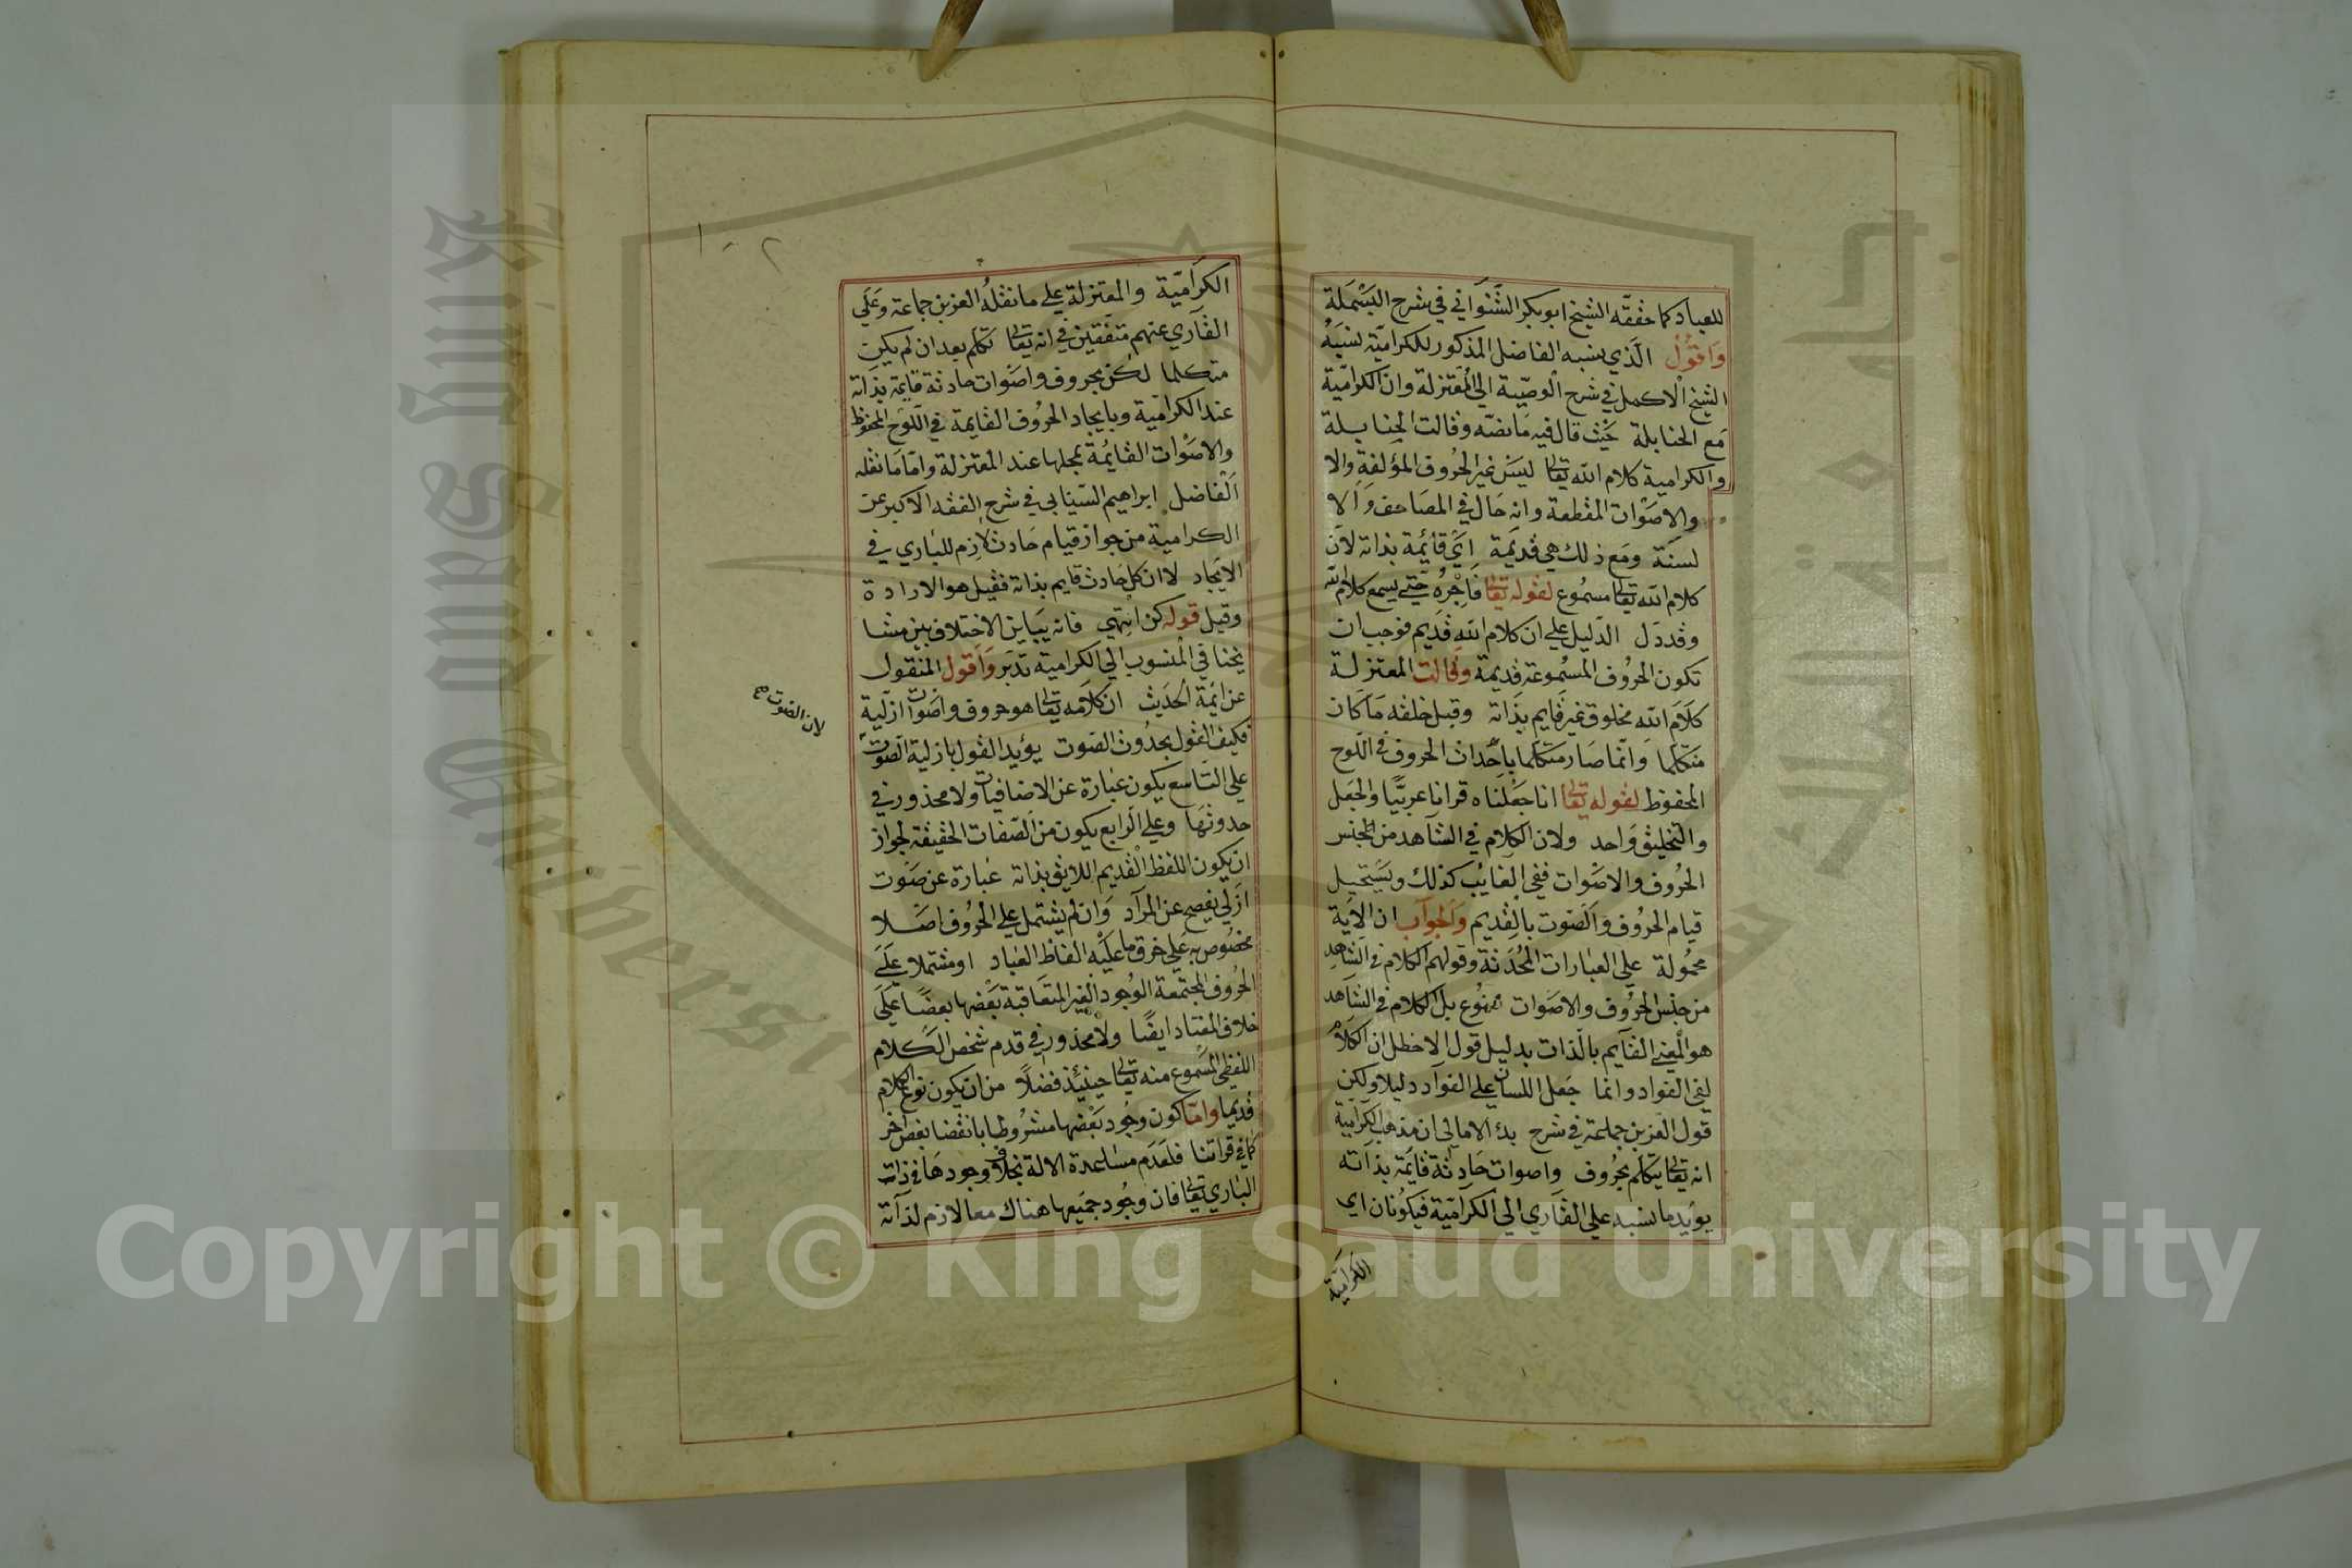 للعباد كما حققه الشيخ ابو بكر الشنواني في شرح البسملة
واقول الذي ينسبه الفاضل المذكور للكرامية نسبه
الشيخ الاكمل في شرح الوصية الي المعتزلة وان الكرامية
مع الحنابلة حيث قال فيه ما نصه وقالت الحنابلة
والكرامية كلام الله تعالى ليس غير الحروف المؤلفة والا
والاصوات المقطعة وانه حال في المصاحف والا
لسنة ومع ذلك هي قديمة اي قائمة بذاته لان
كلام الله تعالى مسموع لقوله تعالى فاجره حتي يسمع كلام الله
وقد دل الدليل علي ان كلام الله قديم فوجب ان
تكون الحروف المسموعة قديمة وقالت المعتزلة
كلام الله مخلوق غير قايم بذاته وقبل خلقه ما كان
متكلما وانما صار متكلما باحداث الحروف في اللوح
المحفوظ لقوله تعالى انا جعلناه قرانا عربيا والجعل
والتخليق واحد ولان الكلام في الشاهد من الجنس
الحروف والاصوات ففي الغايب كذلك ويستحيل
قيام الحروف والصوت بالقديم والجواب ان الاية
محمولة علي العبارات المحدثة وقولهم الكلام في الشاهد
من جنس الحروف والاصوات ممنوع بل الكلام في الشاهد
هو المعني القآيم بالذات بدليل قول الاخطل ان الكلام
لفي الفواد وانما جعل اللسان علي الفوآد دليلا ولكن
قول العز بن جماعة في شرح بدء الامالي ان مذهب الكرامية
انه تعالى يتكلم بحروف واصوات حادثة قايمة بذاته
يويد ما نسبه علي القاري الي الكرامية فيكونان اي
الكرامية
٢-١
الكرامية والمعتزلة علي ما نقله العز بن جماعة وعلي
القاري عنهم متفقين في انه تعالى تكلم بعد ان لم يكن
متكلما لكن بحروف واصوات حادثة قايمة بذاته
عند الكرامية وبايجاد الحروف القايمة في اللوح المحفوظ
والاصوات القايمة بمحلها عند المعتزلة واما ما نقله
الفاضل ابراهيم السينابي في شرح الفقه الاكبر عن
الكرامية من جواز قيام حادث لازم للباري في
الايجاد لا ان كل حادث قايم بذاته فقيل هو الارادة
وقيل قوله كن انتهي فانه يباين الاختلاف بين مشا
يخنا في المنسوب الي الكرامية تدبر واقول المنقول
عن ائمة الحديث ان كلامه تعالى هو حروف واصوات ازلية
فكيف القول بحدوث الصوت يؤيد القول بازلية الصوت
لان الصوت صح
علي التاسع يكون عبارة عن الاضافيات ولا محذور في
حدوثها وعلي الرابع يكون من الصفات الحقيقة لجواز
ان يكون اللفظ القديم اللايق بذاته عبارة عن صوت
ازلي يفصح عن المرآد وان لم يشتمل علي الحروف اصلا
مخصوص به علي خرق ما عليه الفاظ العباد او مشتملا علي
الحروف المجتمعة الوجود الغير المتعاقبة بعضها بعضا علي
خلاف المعتاد ايضا ولا محذور في قدم شخص الكلام
اللفظي المسموع منه تعالى حينئذ فضلا من ان يكون نوع الكلام
قديما واما كون وجود بعضها مشروطا بانقضا بعض اخر
كما في قراتنا فلعدم مساعدة الالة بخلاف وجودها في ذات
الباري تعالى فان وجود جميعها هناك معا لازم لذآته
Copyright © King Saud University
King Saud University